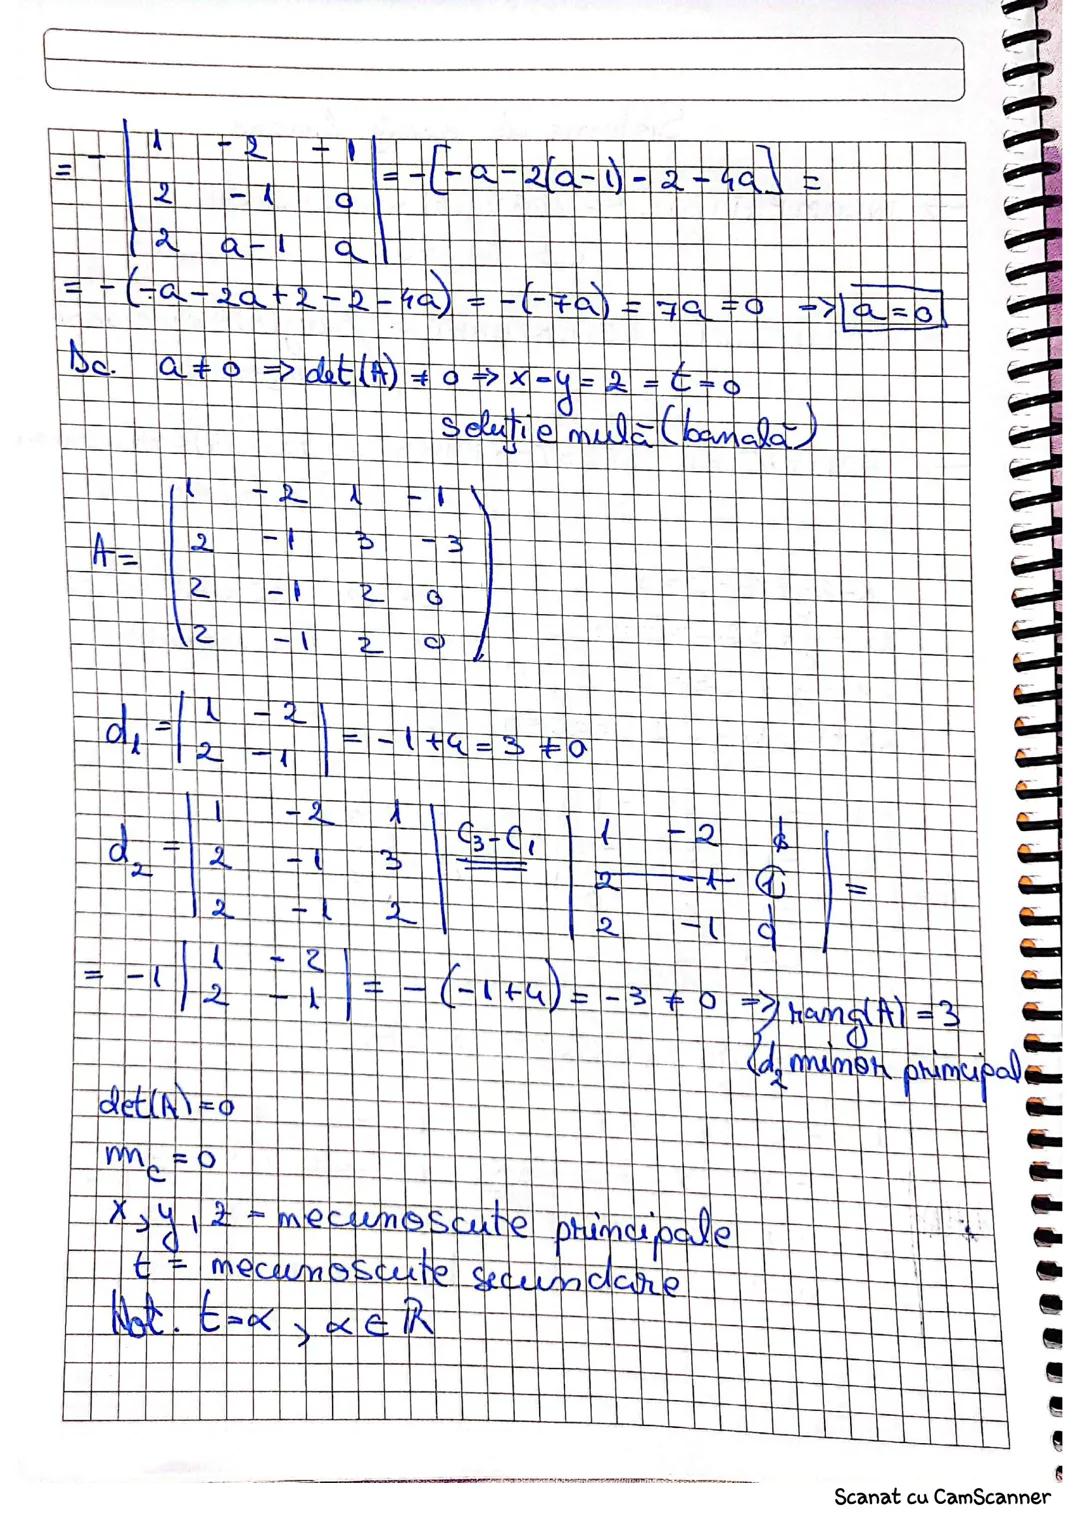 = - | 1 -2 -1 | = -[-a-2(a-1)-2-4a] =
| 2 -1 0 |
| 2 a-1 a |
= -(-a-2a+2-2-4a) = -(-7a) = 7a = 0 => a=0
Dc. a ≠ 0 => det(A) ≠ 0 => x=y=z=t=0
soluție nulă (banală)
A = ( 1 -2 1 -1
2 -1 3 -3
2 -1 2 0
2 -1 2 0 )
d₁ = | 1 -2 | = -1+4 = 3 ≠ 0
| 2 -1 |
d₂ = | 1 -2 1 | C₃-C₁ | 1 -2 0 | =
| 2 -1 3 | | 2 -1 1 |
| 2 -1 2 | | 2 -1 0 |
= -1 | 1 -2 | = -(-1+4) = -3 ≠ 0 => rang(A) = 3
| 2 -1 |
(d₂ minor principal
det(A)=0
nn_c = 0
x, y, z = necunoscute principale
t = necunoscute secundare
Not. t=α, α ∈ ℝ
Scanat cu CamScanner